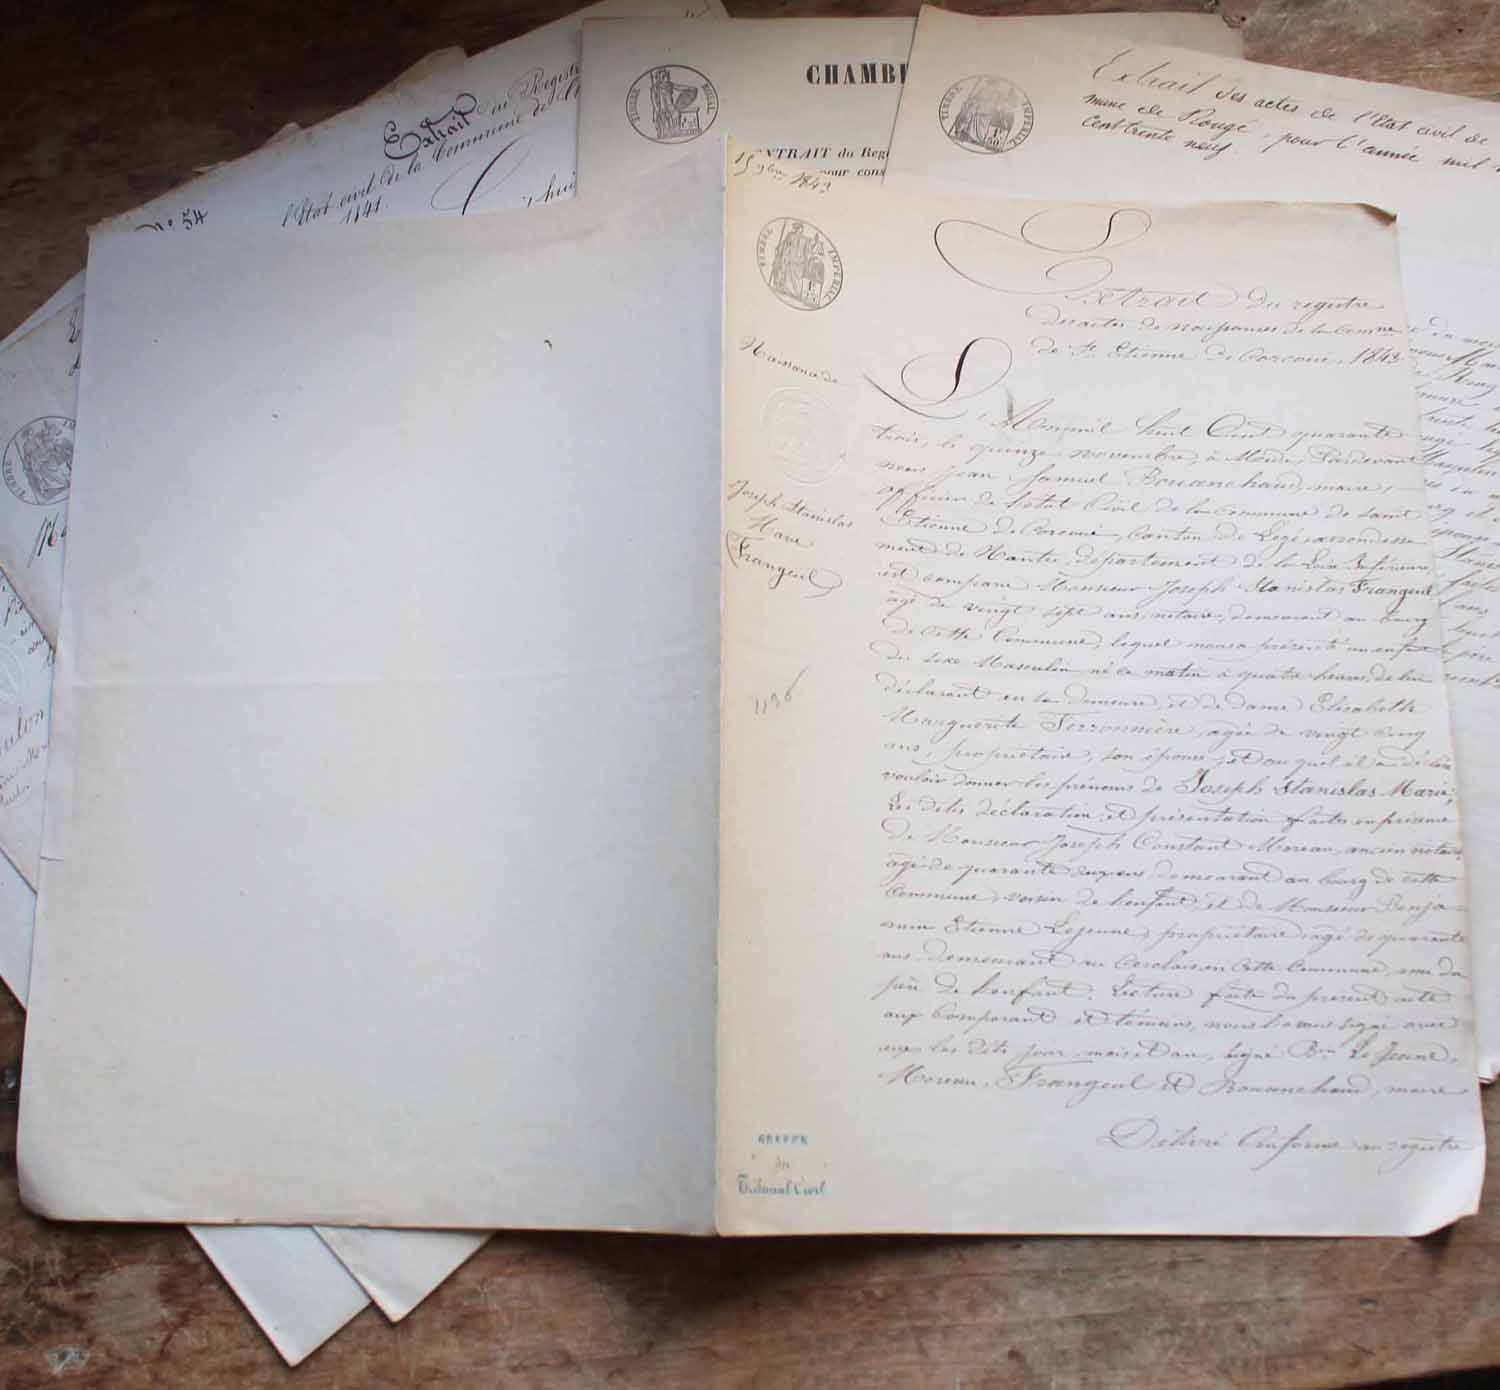 N° 54
Extrait du Registre
l'Etat civil de la Commune de
1841.
TIMBRE ROYAL
CHAMB
EXTRAIT du Reg
pour cons
TIMBRE IMPERIAL
Extrait des actes de l'Etat civil de
mune de Rougé, pour l'année mil
cent trente neuf
15 9bre 1843
TIMBRE IMPERIAL
Extrait du registre
des actes de naissances de la Comne
de St Etienne de Corcoué, 1843
Naissance de
Joseph Stanislas
Marie
Frangeul
1136
L'An mil huit Cent quarante
trois, le quinze novembre, à Midi, Pardevant
nous Jean Samuel Bouanchaud, maire,
officier de l'état Civil de la Commune de saint
Etienne de Corcoué, Canton de Légé arrondisse
ment de Nantes, département de la Loire Inférieure
est comparu Monsieur Joseph Stanislas Frangeul
âgé de vingt sept ans, notaire, demeurant au bourg
de Cette Commune, lequel nous a présenté un enfant
du sexe Masculin né ce matin à quatre heures, de lui
déclarant en sa demeure, et de dame Elisabeth
Marguerite Ferronnière, agée de vingt cinq
ans, propriétaire, son épouse, et au quel il a déclaré
vouloir donner les prénoms de Joseph Stanislas Marie.
Les dites déclaration et présentation faites en présence
de Monsieur Joseph Constant Moreau, ancien notaire
agé de quarante ans demeurant au bourg de cette
Commune, voisin de l'enfant, et de Monsieur Benja
min Etienne Lejeune, propriétaire, agé de quarante
ans demeurant au en Cette Commune, ami du
père de l'enfant. Lecture faite du présent acte
aux Comparant et témoins, nous l'avons signé avec
eux les dits jour, mois et an, signé Bin Le Jeune,
Moreau, Frangeul et Bouanchaud, maire
Délivré Conforme au registre
GREFFE
du
Tribunal Civil